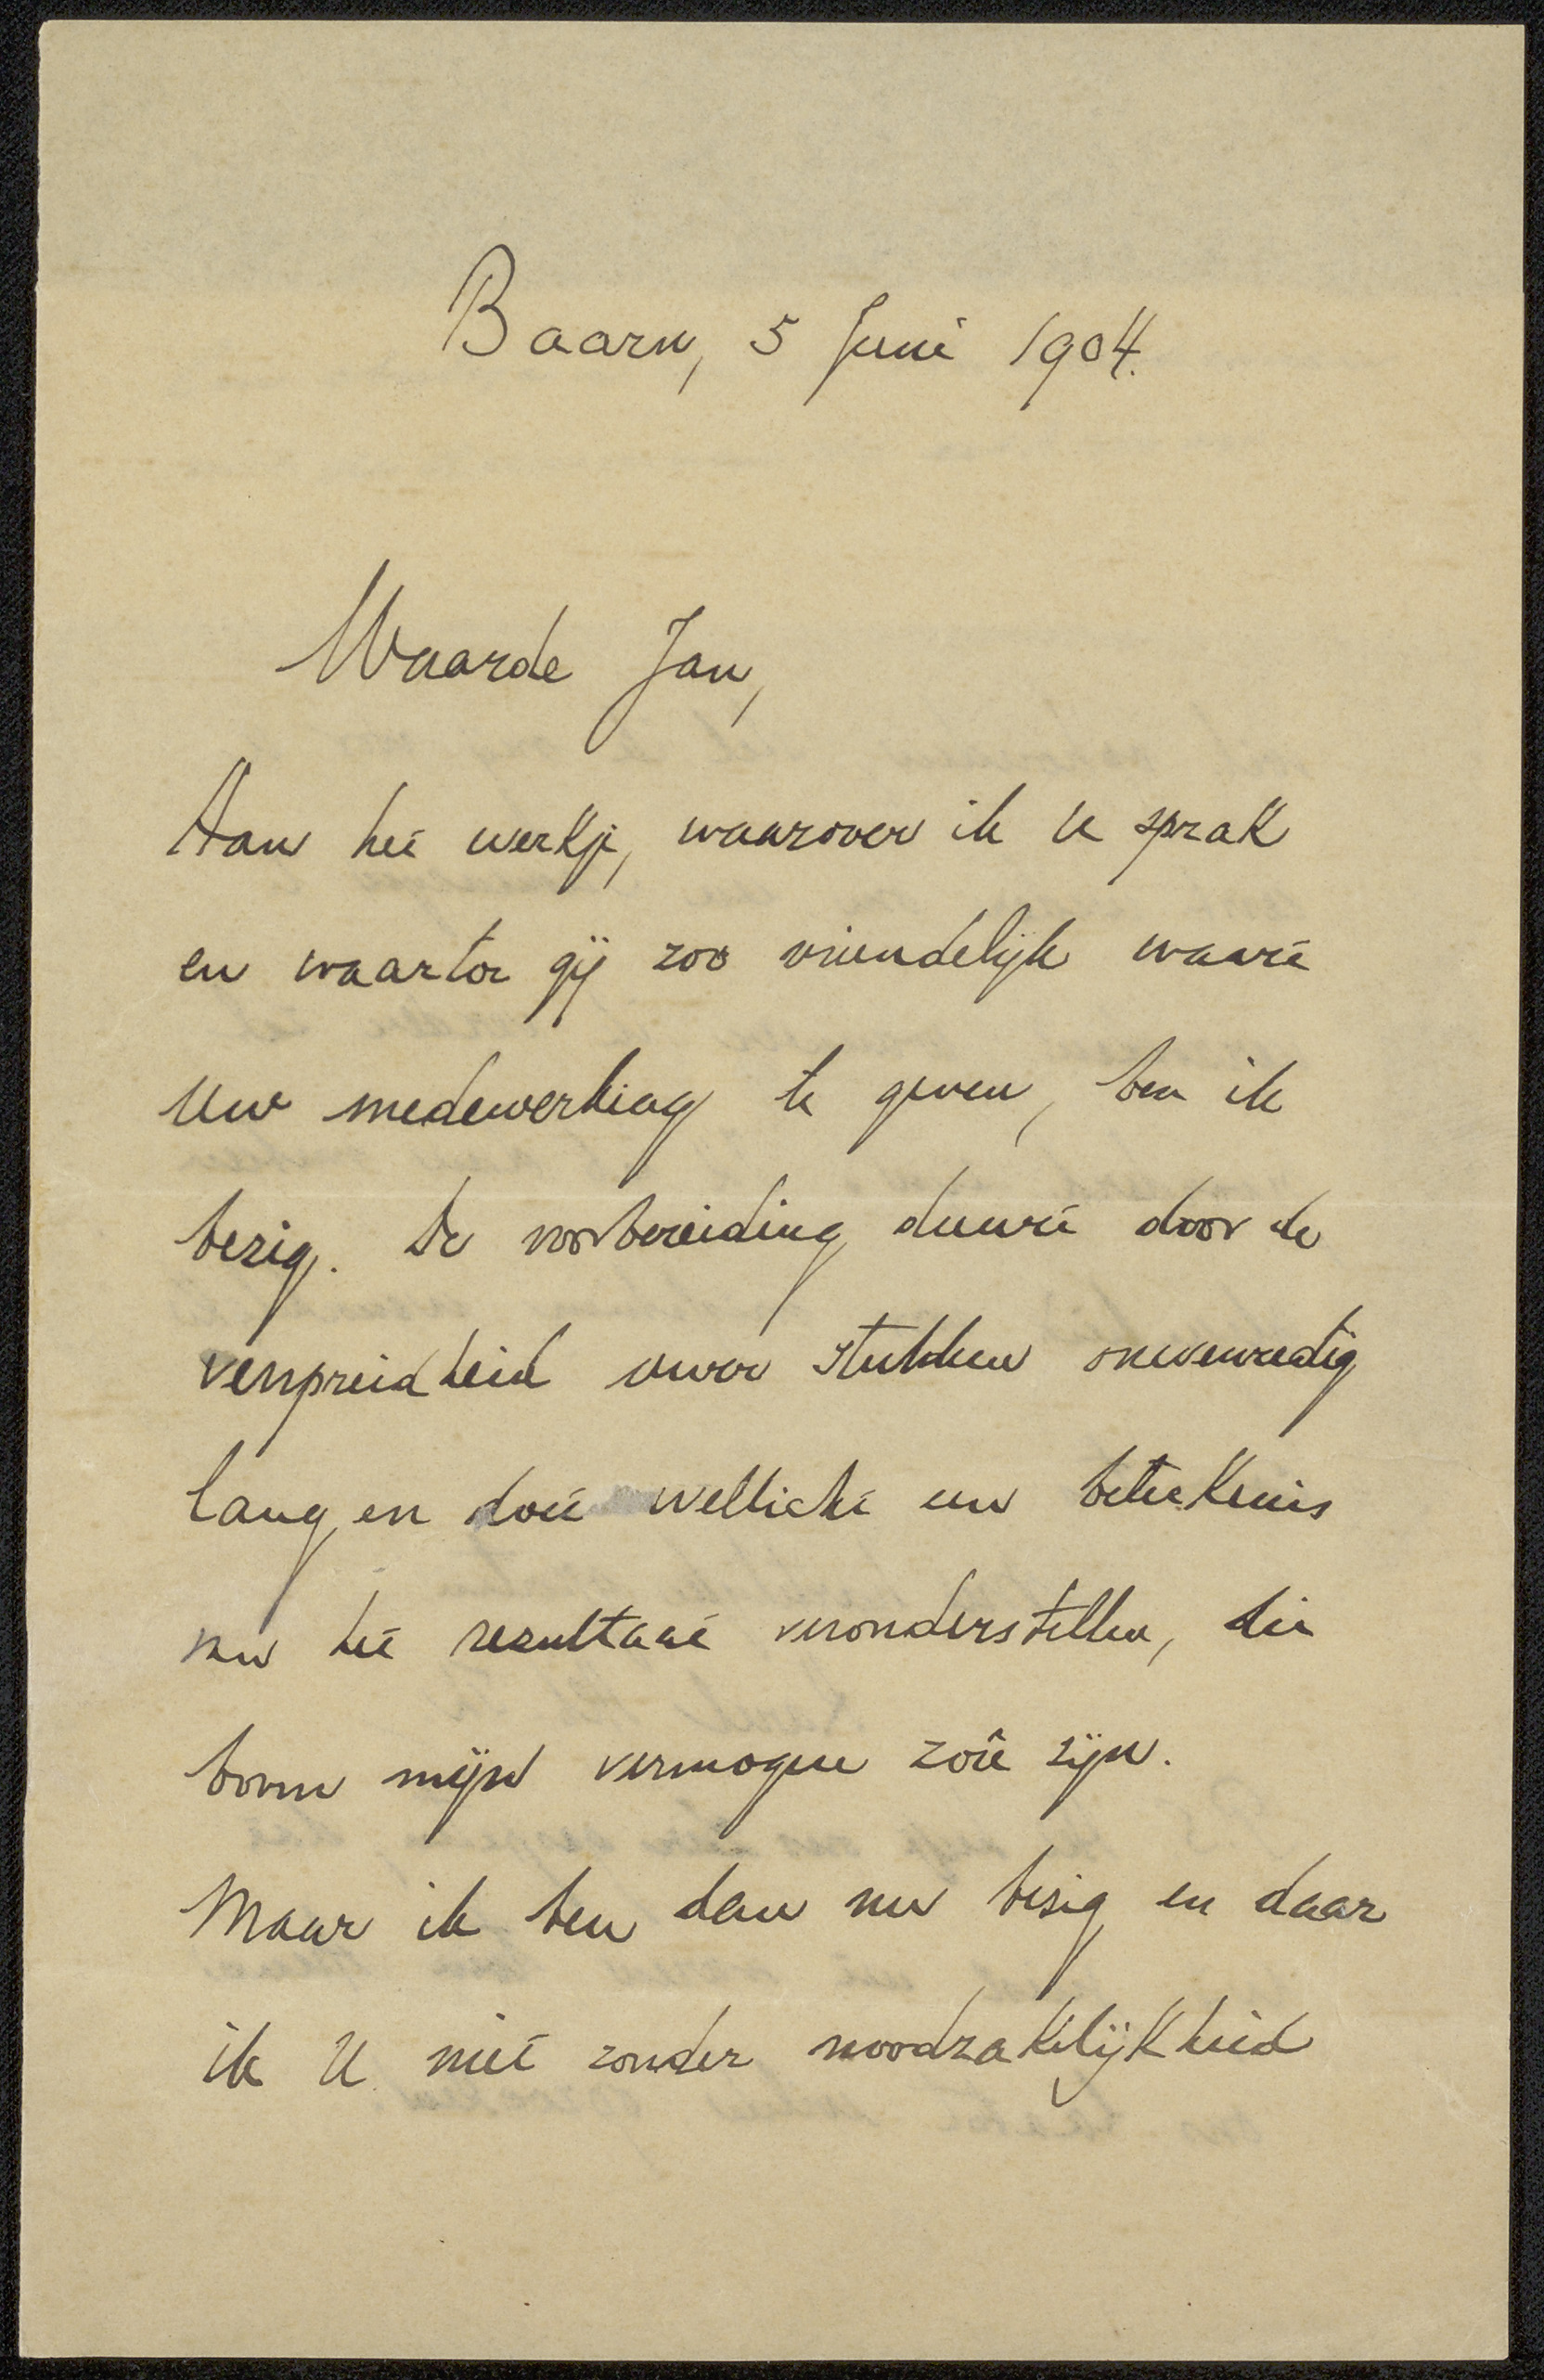 Baarn, 5 Juni 1904.
Waarde Jan,
Aan het werkje, waarover ik U sprak
en waartoe gij zoo vriendelijk waart
Uw medewerking te geven, ben ik
bezig. De voorbereiding duurt door de
verspreidheid uwer stukken onevenredig
lang en doet wellicht een beteekenis
van het resultaat veronderstellen, die
boven mijn vermogen zoû zijn.
Maar ik ben dan nu bezig en daar
ik U niet zonder noodzakelijkheid